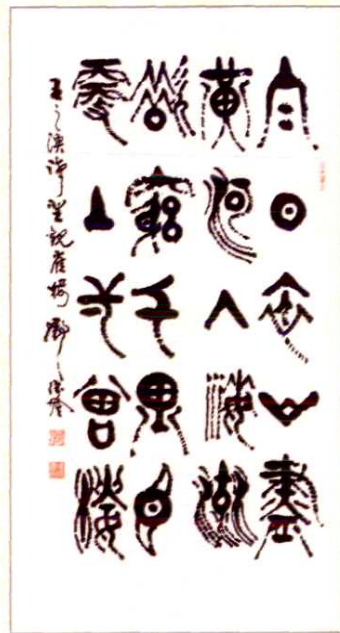 白日依山盡
黄河入海流
欲窮千里目
更上一層樓
王之渙詩登觀雀樓